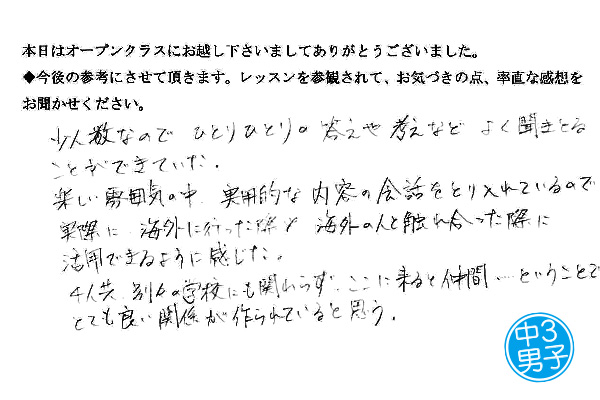 本日はオープンクラスにお越し下さいましてありがとうございました。
◆今後の参考にさせて頂きます。レッスンを参観されて、お気づきの点、率直な感想を
お聞かせください。
少人数なので ひとりひとりの 答えや 考えなど よく聞きとる
ことができていた。
楽しい雰囲気の中、実用的な 内容の会話をとり入れているので
実際に 海外に行った際や 海外の人と触れ合った際に
活用できるように感じた。
4人共 別々の学校にも関わらず、ここに来ると仲間…ということで
とても良い関係が作られていると思う。
中3
男子